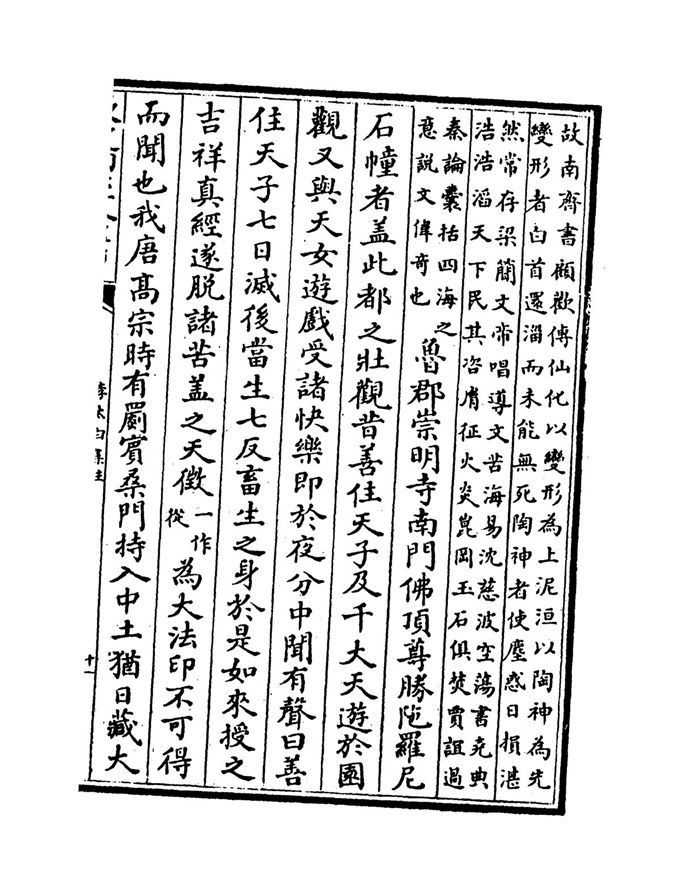 故南齊書顧歡傳仙化以變形為上泥洹以陶神為先
變形者白首還淄而未能無死陶神者使塵惑日損湛
然常存梁簡文帝唱導文苦海易沈慈波空蕩書堯典
浩浩滔天下民其咨胤征火炎崑岡玉石俱焚賈誼過
秦論囊括四海之
意説文偉奇也
魯郡崇明寺南門佛頂尊勝陁羅尼
石幢者蓋此都之壯觀昔善住天子及千大天遊於園
觀又與天女遊戲受諸快樂即於夜分中聞有聲曰善
住天子七日滅後當生七反畜生之身於是如來授之
吉祥真經遂脱諸苦蓋之天徵一作
從
為大法印不可得
而聞也我唐髙宗時有罽賓桑門持入中土猶日藏大
李太白集注
十一